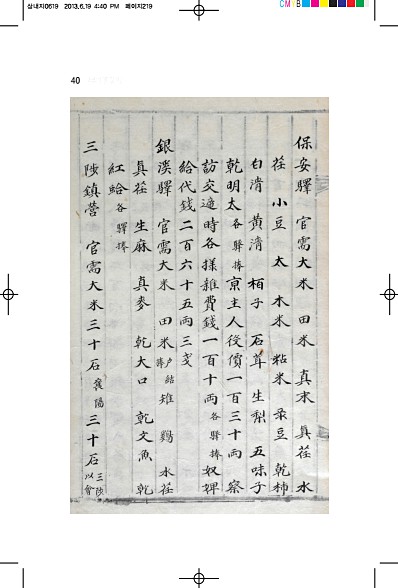 삼내지0619 2013.6.19 4:40 PM 페이지219
CMYB
40
保安驛 官需大米 田米 真末 真荏 水
荏 小豆 太 木米 粘米 菉豆 乾柿
白淸 黃淸 栢子 石茸 生梨 五味子
乾明太各驛捧 京主人役價一百三十兩 察
訪交遞時各樣雜費錢一百十兩各驛捧 奴婢
給代錢二百六十五兩三戔
銀溪驛 官需大米 田米戶結捧 雉 鷄 水荏
真荏 生麻 真麥 乾大口 乾文魚 乾
紅蛤各驛捧
三陟鎮營 官需大米三十石襄陽 三十石三陟以會